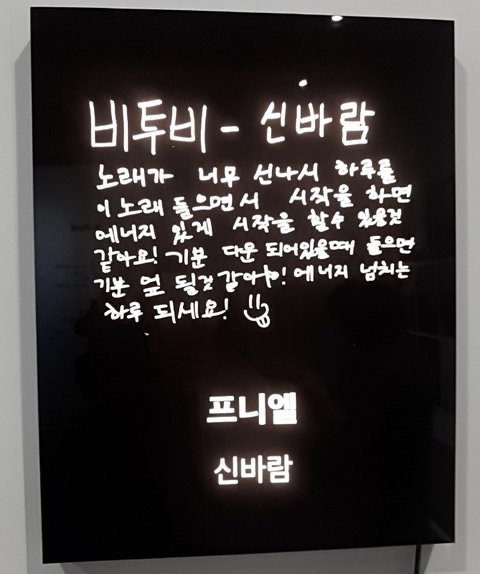 비투비 - 신바람
노래가 너무 신나서 하루를
이 노래 들으면서 시작을 하면
에너지 있게 시작을 할수 있을것
같아요! 기분 다운 되어있을때 들으면
기분 업 될것 같아요! 에너지 넘치는
하루 되세요!
프니엘
신바람